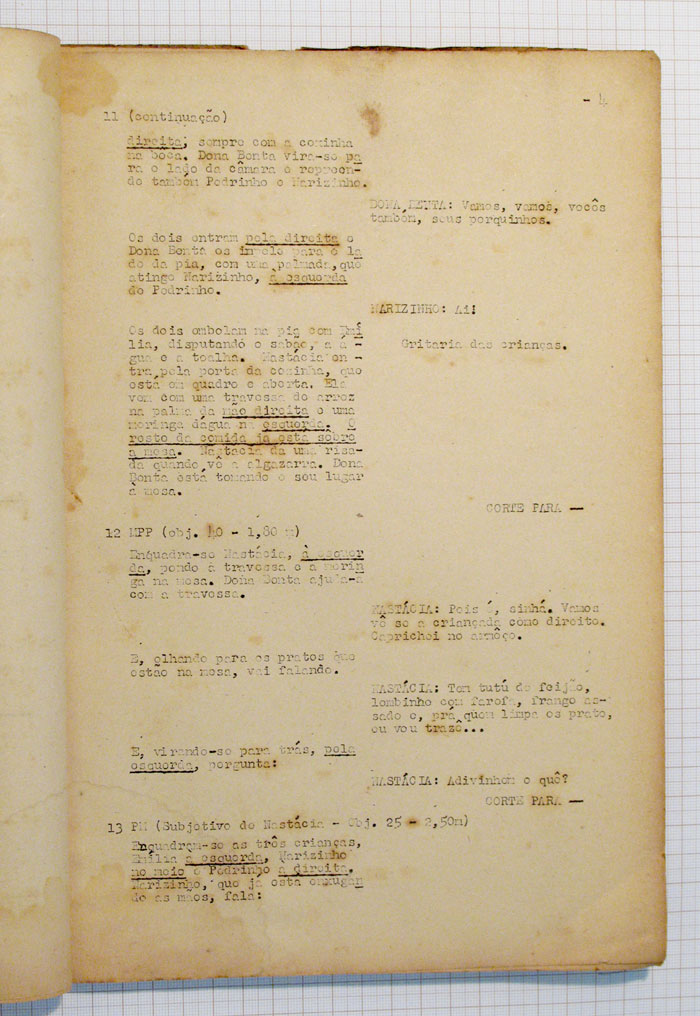 - 4
11 (continuação)
direita, sempre com a cominha
na boca. Dona Benta vira-se pa
ra o lado da câmara e repreen-
de também Pedrinho e Narizinho.
DONA BENTA: Vamos, vamos, vocês
também, seus porquinhos.
Os dois entram pela direita e
Dona Benta os impele para o la
do da pia, com uma palmada, que
atinge Narizinho, à esquerda
de Pedrinho.
NARIZINHO: Ai!
Os dois embolam na pia com Emí
lia, disputando o sabão, a á -
gua e a toalha. Nastácia en -
tra pela porta da cozinha, que
está em quadro e aberta. Ela
vem com uma travessa de arroz
na palma da mão direita e uma
moringa dágua na esquerda. O
resto da comida já está sôbre
a mesa. Nastácia dá uma risa-
da quando vê a algazarra. Dona
Benta está tomando o seu lugar
à mesa.
Gritaria das crianças.
CORTE PARA —
12 MPP (obj. 40 - 1,60 m)
Enquadra-se Nastácia, à esquer
da, pondo a travessa e a morin
ga na mesa. Dona Benta ajuda-a
com a travessa.
NASTÁCIA: Pois é, sinhá. Vamos
vê se a criançada come direito.
Caprichei no armôço.
E, olhando para os pratos que
estão na mesa, vai falando.
NASTÁCIA: Tem tutú de feijão,
lombinho com farofa, frango as-
sado e, prá quem limpa os prato,
ou vou trazê...
E, virando-se para trás, pela
esquerda, pergunta:
NASTÁCIA: Adivinhem o quê?
CORTE PARA —
13 PM (Subjetivo de Nastácia - Obj. 25 - 2,50m)
Enquadram-se as três crianças,
Emília à esquerda, Narizinho
no meio e Pedrinho à direita.
Narizinho, que já está enxugan
do as mãos, fala: